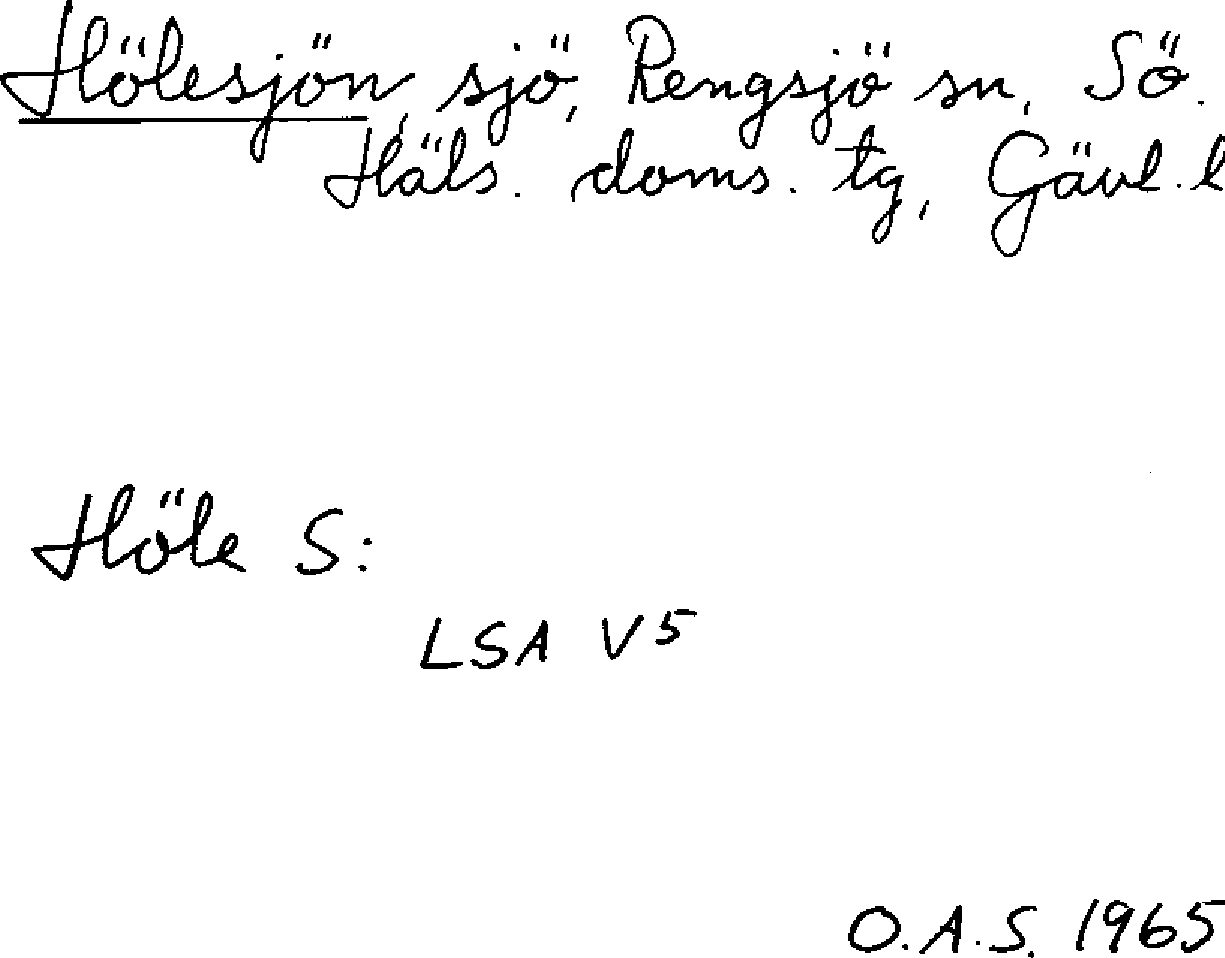 Hölesjön, sjö, Rengsjö sn, Sö.
Häls. doms. tg, Gävl. l
Höle S:
LSA V5
O.A.S. 1965